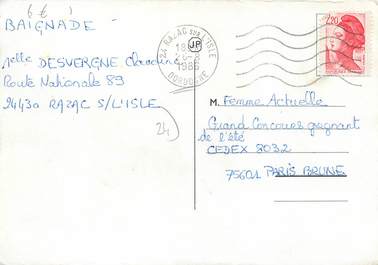 6€ 1
BAIGNADE
Melle DESVERGNE Claudine
Route Nationale 89
24430 RAZAC S/L'ISLE
24
24 RAZAC SUR L'ISLE
18
1986
DORDOGNE
JP
2,20
M. Femme Actuelle
Grand Concours gagnant
de l'été
CEDEX 2032
75601 PARIS BRUNE